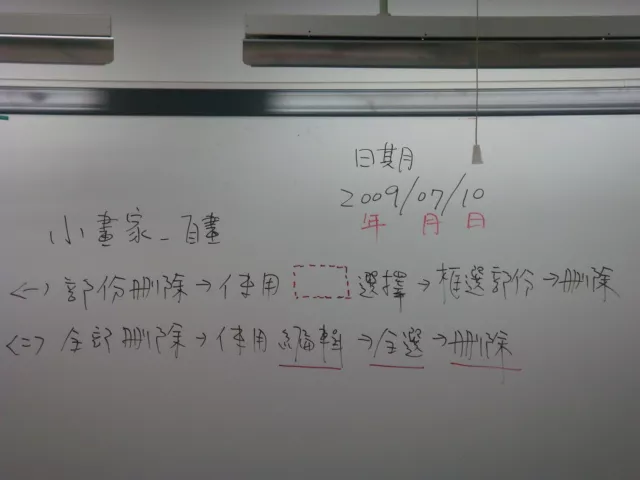 日期
2009/07/10
年 月 日
小畫家_自畫
<一> 部份刪除→使用 選擇→框選部份→刪除
<二> 全部刪除→使用編輯→全選→刪除